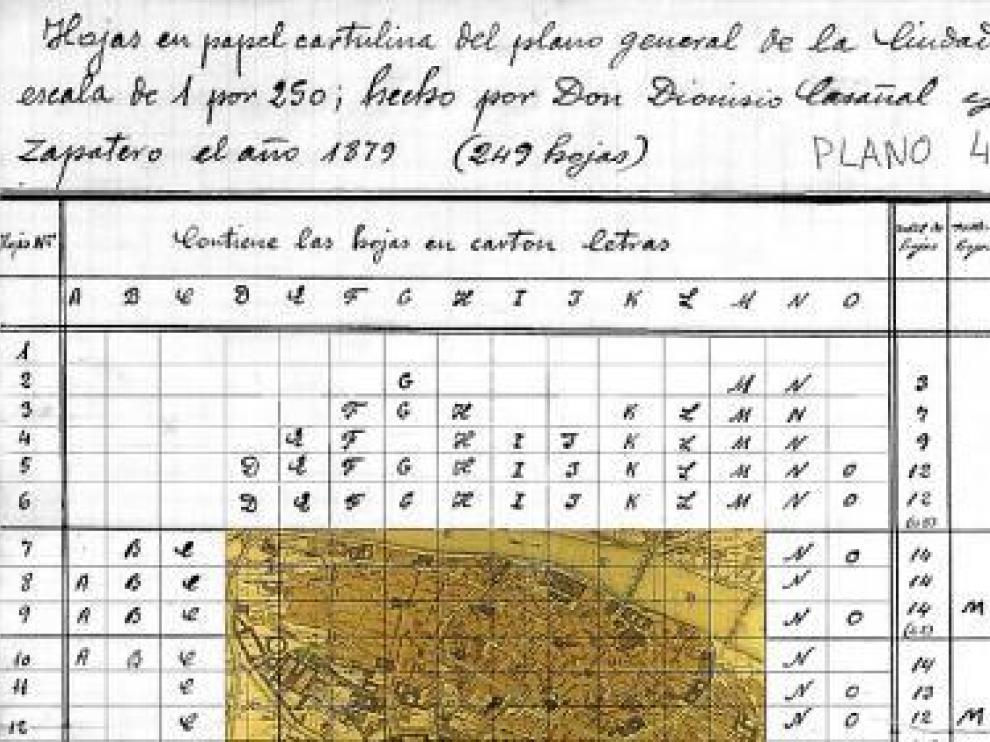 Hojas en papel cartulina del plano general de la Ciudad
escala de 1 por 250; hecho por Don Dionisio Casañal y
Zapatero el año 1879 (249 hojas) PLANO 4
Hojas Nº Contiene las hojas en carton letras
A B C D E F G H I J K L M N O
1
2 G M N 3
3 F G H K L M N 7
4 E F H I J K L M N 9
5 D E F G H I J K L M N O 12
6 D E F G H I J K L M N O 12
7 B C N O 14
8 A B C N 14
9 A B C N O 14 M
10 A B C N 14
11 C N O 13
12 C N O 12 M